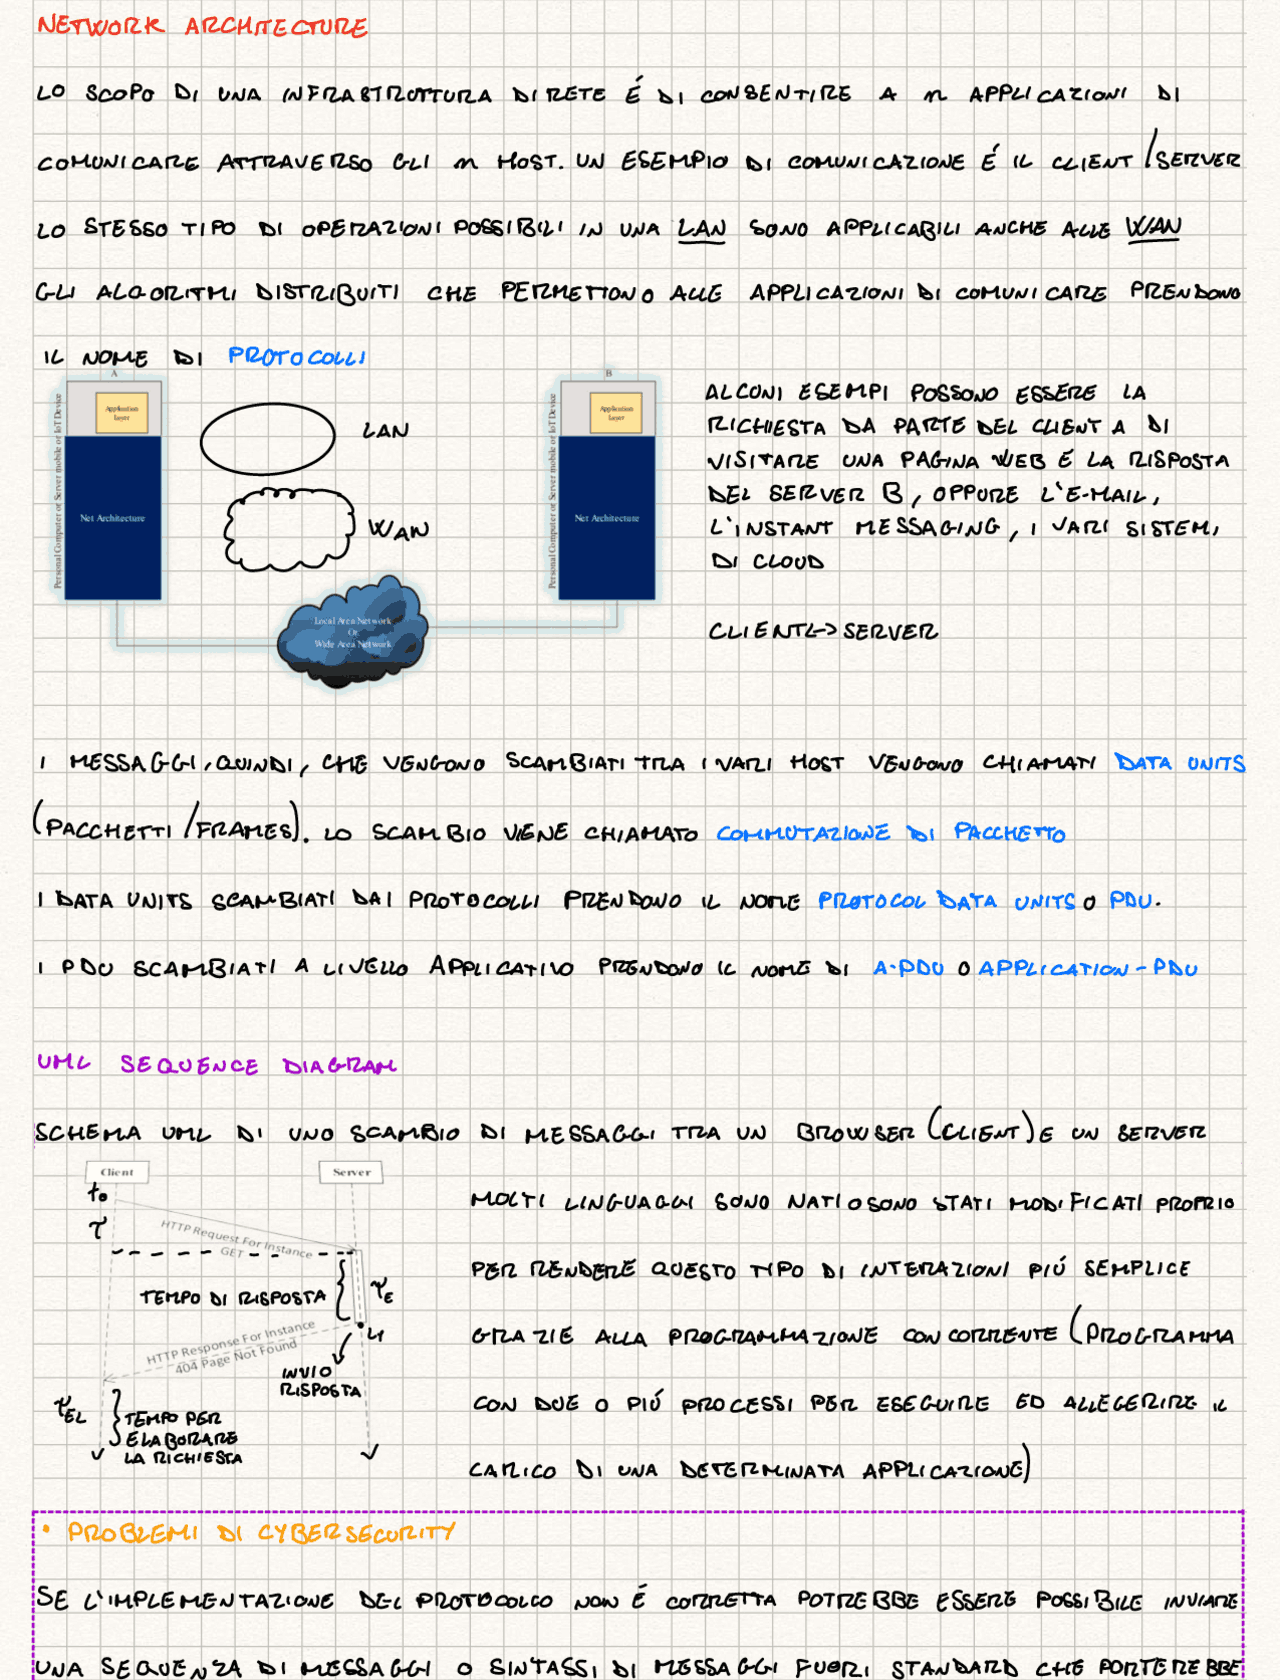 NETWORK ARCHITECTURE
LO SCOPO DI UNA INFRASTRUTTURA DI RETE É DI CONSENTIRE A n APPLICAZIONI DI
COMUNICARE ATTRAVERSO GLI n HOST. UN ESEMPIO DI COMUNICAZIONE É IL CLIENT/SERVER
LO STESSO TIPO DI OPERAZIONI POSSIBILI IN UNA LAN SONO APPLICABILI ANCHE ALLE WAN
GLI ALGORITMI DISTRIBUITI CHE PERMETTONO ALLE APPLICAZIONI DI COMUNICARE PRENDONO
IL NOME DI PROTOCOLLI
A
Personal Computer or Server mobile or IoT Device
Application
Layer
Net Architecture
LAN
WAN
Local Area Network
Or
Wide Area Network
B
Personal Computer or Server mobile or IoT Device
Application
Layer
Net Architecture
ALCUNI ESEMPI POSSONO ESSERE LA
RICHIESTA DA PARTE DEL CLIENT A DI
VISITARE UNA PAGINA WEB E LA RISPOSTA
DEL SERVER B, OPPURE L'E-MAIL,
L'INSTANT MESSAGING, I VARI SISTEMI
DI CLOUD
CLIENT<->SERVER
I MESSAGGI, QUINDI, CHE VENGONO SCAMBIATI TRA I VARI HOST VENGONO CHIAMATI DATA UNITS
(PACCHETTI/FRAMES). LO SCAMBIO VIENE CHIAMATO COMMUTAZIONE DI PACCHETTO
I DATA UNITS SCAMBIATI DAI PROTOCOLLI PRENDONO IL NOME PROTOCOL DATA UNITS O PDU.
I PDU SCAMBIATI A LIVELLO APPLICATIVO PRENDONO IL NOME DI A-PDU O APPLICATION-PDU
UML SEQUENCE DIAGRAM
SCHEMA UML DI UNO SCAMBIO DI MESSAGGI TRA UN BROWSER (CLIENT) E UN SERVER
Client
Server
t0
τ
HTTP Request For Instance
GET
TEMPO DI RISPOSTA
τE
HTTP Response For Instance
404 Page Not Found
INVIO
RISPOSTA
τEL
TEMPO PER
ELABORARE
LA RICHIESTA
MOLTI LINGUAGGI SONO NATI O SONO STATI MODIFICATI PROPRIO
PER RENDERE QUESTO TIPO DI INTERAZIONI PIÚ SEMPLICE
GRAZIE ALLA PROGRAMMAZIONE CONCORRENTE (PROGRAMMA
CON DUE O PIÚ PROCESSI PER ESEGUIRE ED ALLEGERIRE IL
CARICO DI UNA DETERMINATA APPLICAZIONE)
• PROBLEMI DI CYBERSECURITY
SE L'IMPLEMENTAZIONE DEL PROTOCOLLO NON É CORRETTA POTREBBE ESSERE POSSIBILE INVIARE
UNA SEQUENZA DI MESSAGGI O SINTASSI DI MESSAGGI FUORI STANDARD CHE PORTEREBBE